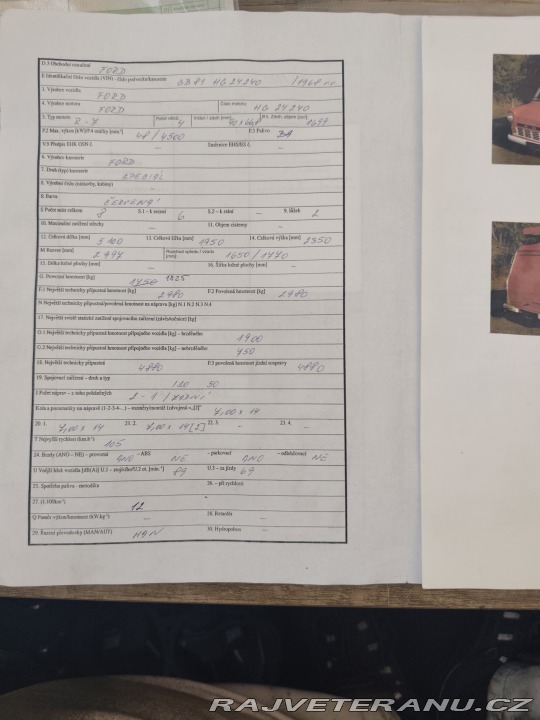 D.3 Obchodní označení FORD
E Identifikační číslo vozidla (VIN) - číslo podvozku/karoserie GBA1 HG24240 /1968 r.v.
3. Výrobce vozidla FORD
4. Výrobce motoru FORD Číslo motoru HG 24240
5. Typ motoru R - 4 Počet válců 4 1699
P.2 Max. výkon [kW]/P.4 otáčky [min⁻¹] 48 / 4500 P.3 Palivo BA
V.9 Předpis EHK OSN č. — Směrnice EHS/ES č. —
6. Výrobce karoserie FORD
7. Druh (typ) karoserie
8. Výrobní číslo (nástavby, kabiny) —
R Barva ČERVENÁ
S Počet míst celkem 8 S.1 - k sezení 6 S.2 - k stání — 9. lůžek 2
10. Maximální zatížení střechy — 11. Objem cisterny —
12. Celková délka [mm] 5100 13. Celková šířka [mm] 1950 14. Celková výška [mm] 2350
M Rozvor [mm] 2997 1650 / 1770
15. Délka ložné plochy [mm] — 16. Šířka ložné plochy [mm] —
G Provozní hmotnost [kg] 1750 1825
F.1 Největší technicky přípustná/povolená hmotnost [kg] 2980 F.2 Povolená hmotnost [kg] 2980
N Největší technicky přípustná/povolená hmotnost na nápravu [kg] N.1 N.2 N.3 N.4
17. Největší svislé statické zatížení spojovacího zařízení
O.1 Největší technicky přípustná hmotnost přípojného vozidla [kg] - brzděného 1900
O.2 Největší technicky přípustná hmotnost přípojného vozidla [kg] - nebrzděného 750
18. Největší technicky přípustná 4880 F.3 povolená hmotnost jízdní soupravy 4880
19. Spojovací zařízení - druh a typ 120 50
L Počet náprav - z toho poháněných 2 - 1 / ZADNÍ
7,00 x 14
20. 1. 7,00 x 14 21. 2. 7,00 x 14 [2] 22. 3. — 23. 4. —
T Nejvyšší rychlost [km.h⁻¹] 105
24. Brzdy (ANO - NE) - provozní ANO - ABS NE - parkovací ANO - odlehčovací NE
U Vnější hluk vozidla [dB(A)] U.1 - stojícího/U.2 ot. [min⁻¹] 89 U.3 - za jízdy 69
25. Spotřeba paliva - metodika 26. - při rychlosti
27. (l.100km⁻¹) 12
Q Poměr výkon/hmotnost [kW.kg⁻¹] — 28. Retardér —
29. Řazení převodovky (MAN/AUT) MAN 30. Hydropohon —
RAJVETERANU.CZ